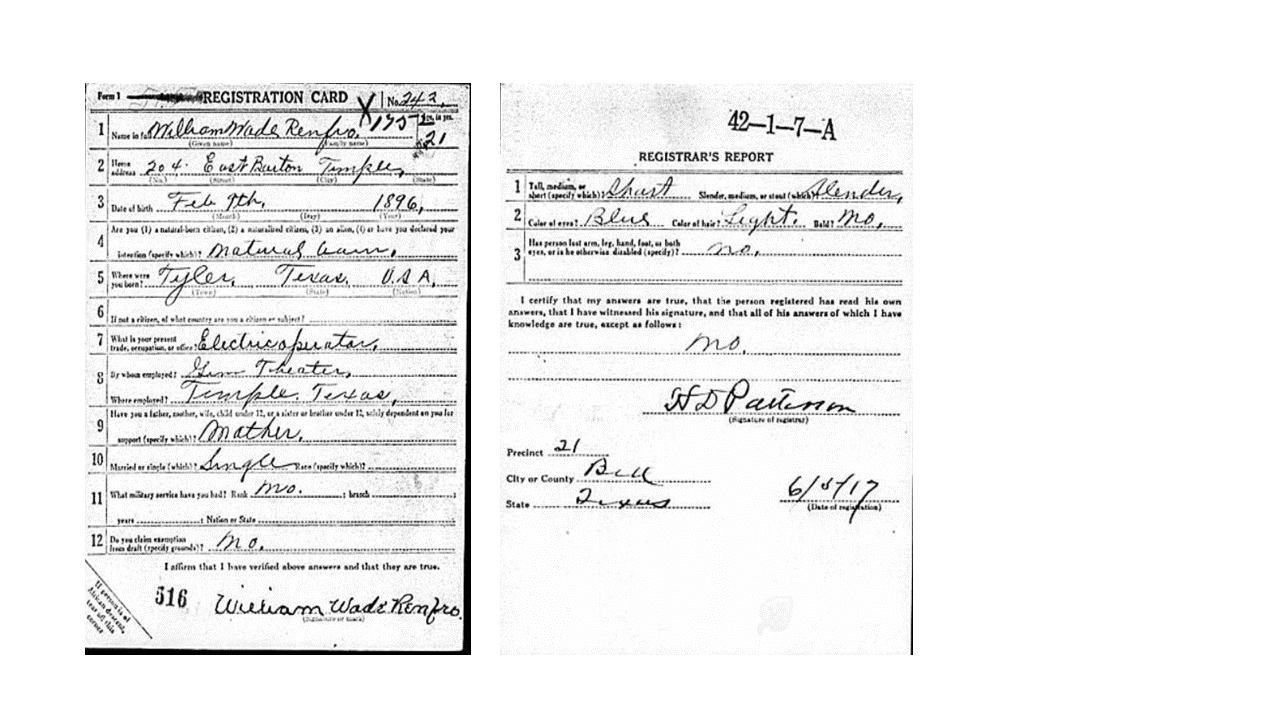 Form 1 REGISTRATION CARD No. 242
1 Name in full William Wade Renfro. 195 Age, in yrs. 21
(Given name) (Family name)
2 Home address 204 East Barton Temple,
(No.) (Street) (City) (State)
3 Date of birth Feb 9th, 1896,
(Month) (Day) (Year)
Are you (1) a natural-born citizen, (2) a naturalized citizen, (3) an alien, (4) or have you declared your
4 intention (specify which)? Natural born,
5 Where were you born? Tyler, Texas, U.S.A,
(Town) (State) (Nation)
6 If not a citizen, of what country are you a citizen or subject?
7 What is your present trade, occupation, or office? Electric operator,
8 By whom employed? Gem Theater,
Where employed? Temple, Texas,
Have you a father, mother, wife, child under 12, or a sister or brother under 12, solely dependent on you for
9 support (specify which)? Mother,
10 Married or single (which)? Single Race (specify which)?
11 What military service have you had? Rank No. ; branch ;
years ; Nation or State
12 Do you claim exemption from draft (specify grounds)? No,
I affirm that I have verified above answers and that they are true.
516 William Wade Renfro.
(Signature or mark)
If person is of
African descent,
tear off this
corner
42—1—7—A
REGISTRAR'S REPORT
1 Tall, medium, or short (specify which)? Short Slender, medium, or stout (which)? Slender,
2 Color of eyes? Blue Color of hair? Light. Bald? No,
3 Has person lost arm, leg, hand, foot, or both eyes, or is he otherwise disabled (specify)? no,
I certify that my answers are true, that the person registered has read his own
answers, that I have witnessed his signature, and that all of his answers of which I have
knowledge are true, except as follows:
no.
H D Patterson
(Signature of registrar)
Precinct 21
City or County Bell
State Texas
6/5/17
(Date of registration)